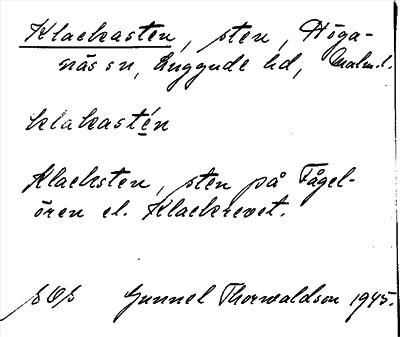 Klackasten, sten, Höga-
näs sn, Luggude hd, Malm. l.
klakastén
Klacksten, sten på Fågel-
ören el. Klackrevet.
SOS Gunnel Thorwaldson 1945.